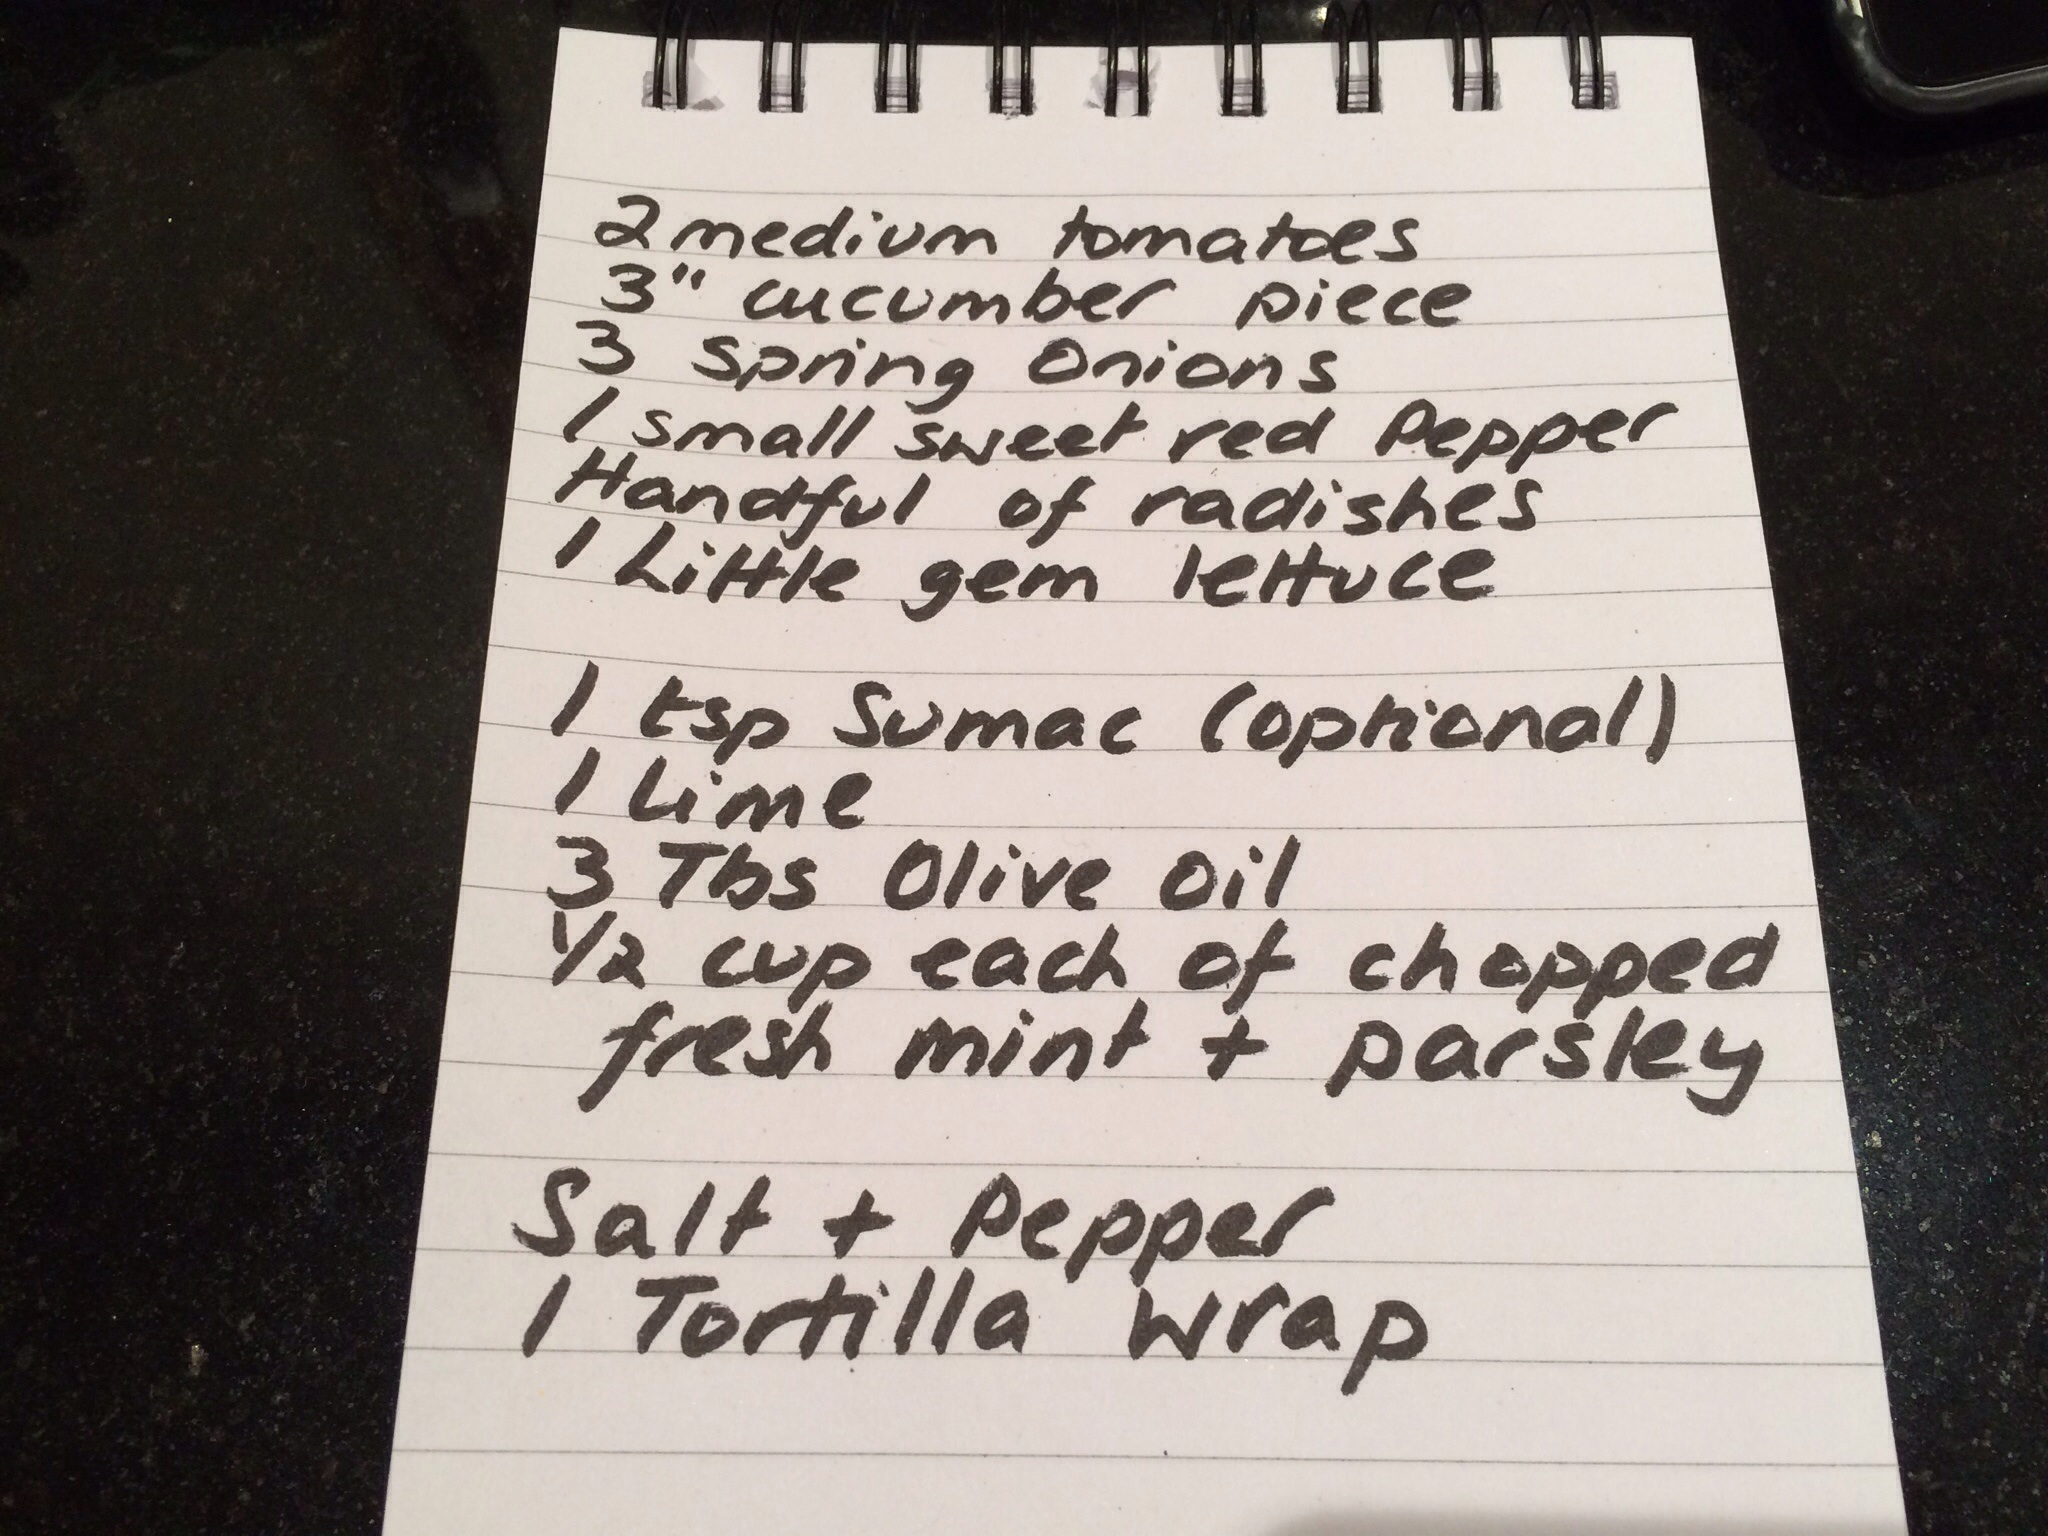 2 medium tomatoes
3" cucumber piece
3 Spring Onions
1 small sweet red Pepper
Handful of radishes
1 Little gem lettuce
1 tsp Sumac (optional)
1 Lime
3 Tbs Olive Oil
1/2 cup each of chopped
fresh mint + parsley
Salt + Pepper
1 Tortilla Wrap